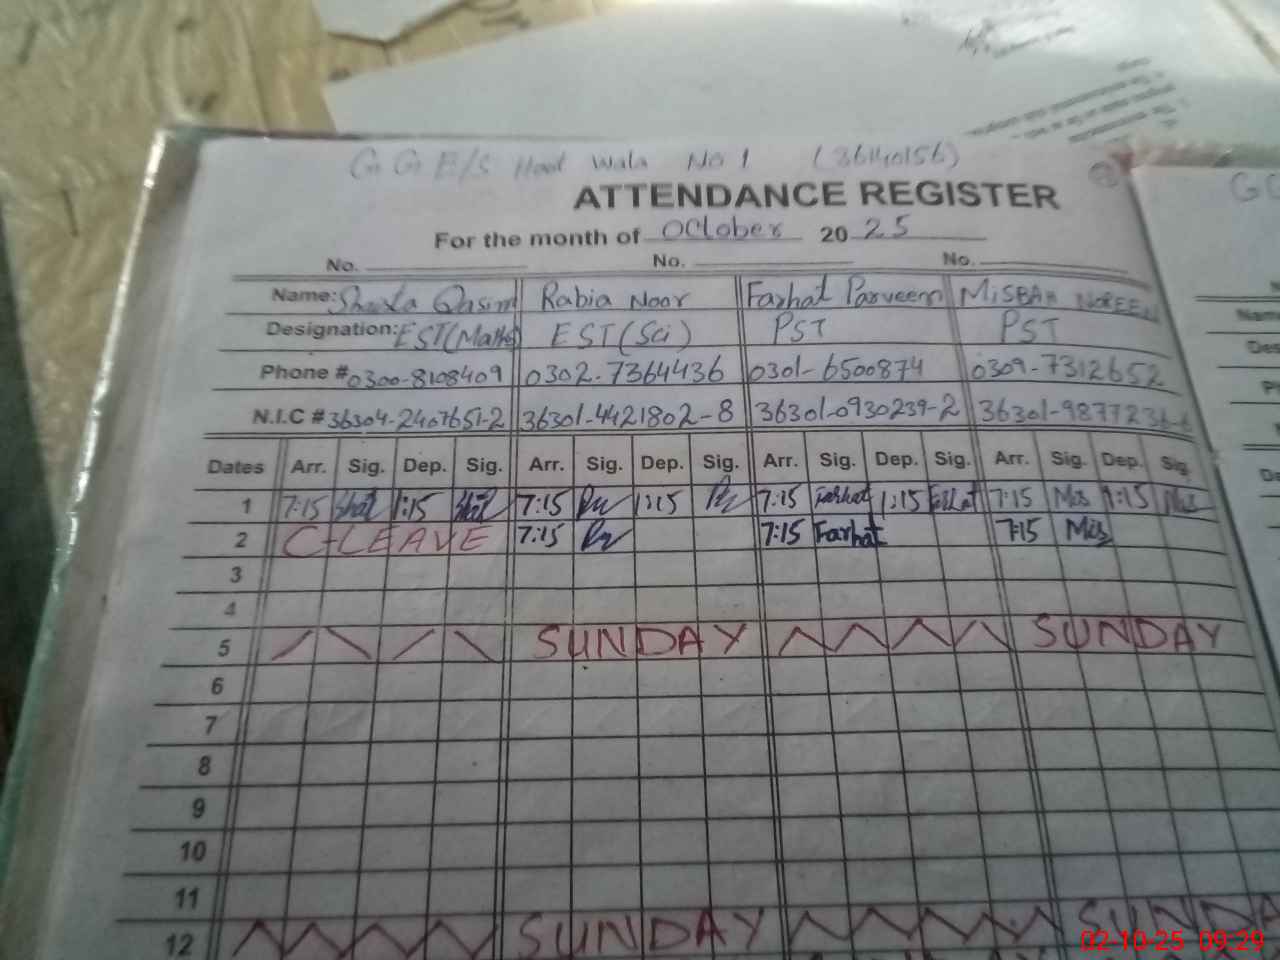 G G E/S Hoot Wala No 1 (36140156)
ATTENDANCE REGISTER
For the month of October 20 25
No. No. No.
Name: Qasim Rabia Noor Farhat Parveen MISBAH NOREEN
Designation: EST(Maths) EST(Sci) PST PST
Phone # 0300-8108409 0302-7364436 0301-6500874 0309-7312652
N.I.C # 36304-2407651-2 36301-4421802-8 36301-0930239-2 36301-9877236-6
Dates Arr. Sig. Dep. Sig. Arr. Sig. Dep. Sig. Arr. Sig. Dep. Sig. Arr. Sig. Dep. Sig.
1 7:15 1:15 7:15 1:15 7:15 Farhat 1:15 Farhat 7:15 Mis 1:15 Mis
2 C-LEAVE 7:15 7:15 Farhat 7:15 Mis
3
4
5 SUNDAY SUNDAY
6
7
8
9
10
11
12 SUNDAY SUNDA
02-10-25 09:29